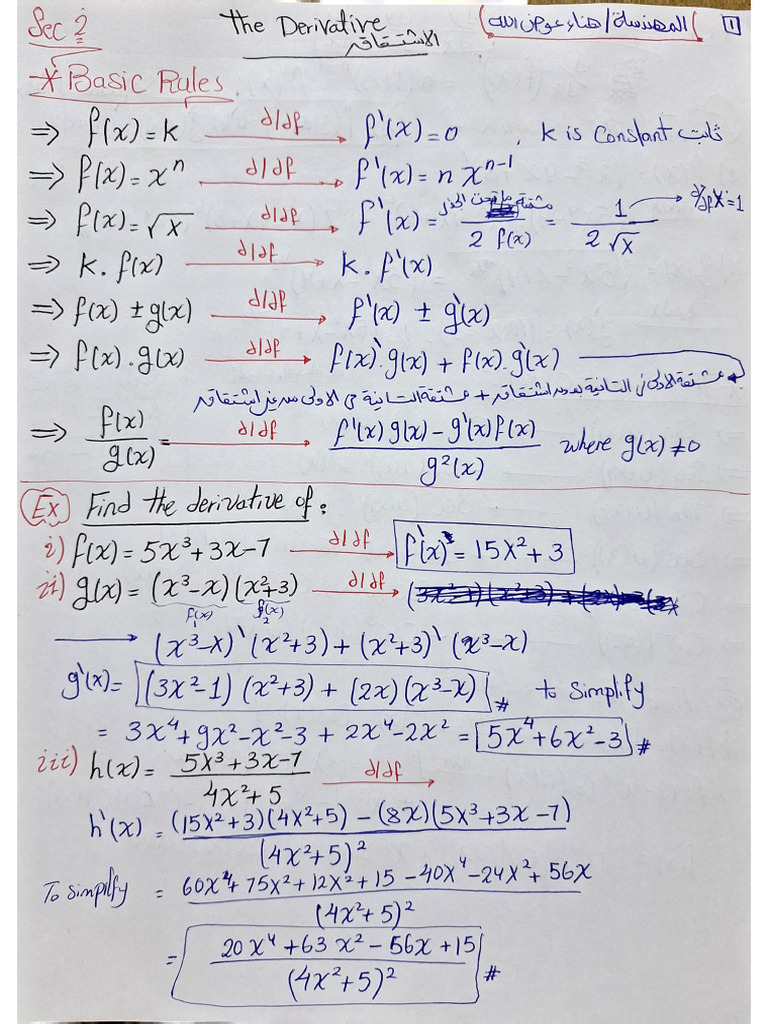 Sec 2
The Derivative
الاشتقاق
(المهندسة/هناء عوض الله)
1
* Basic Rules.
⇒ f(x) = k d/df f'(x) = 0 , k is Constant ثابت
⇒ f(x) = xⁿ d/df f'(x) = n xⁿ⁻¹
⇒ f(x) = √x d/df f'(x) = مشتقة ما تحت الجذر / 2 f(x) = 1 / 2√x d/df x = 1
⇒ k . f(x) d/df k . f'(x)
⇒ f(x) ± g(x) d/df f'(x) ± g'(x)
⇒ f(x) . g(x) d/df f(x)' . g(x) + f(x) . g'(x)
مشتقة الاولى في الثانية بدون اشتقاق + مشتقة الثانية في الاولى من غير اشتقاق
⇒ f(x) / g(x) = d/df f'(x) g(x) − g'(x) f(x) / g²(x) where g(x) ≠ 0
Ex Find the derivative of:
i) f(x) = 5x³ + 3x − 7 d/df f'(x) = 15x² + 3
ii) g(x) = (x³ − x) (x² + 3) d/df
f₁(x) f₂(x)
(x³ − x)' (x² + 3) + (x² + 3)' (x³ − x)
g'(x) = (3x² − 1) (x² + 3) + (2x) (x³ − x) # to simplify
= 3x⁴ + 9x² − x² − 3 + 2x⁴ − 2x² = 5x⁴ + 6x² − 3 #
iii) h(x) = 5x³ + 3x − 7 / 4x² + 5 d/df
h'(x) = (15x² + 3)(4x² + 5) − (8x)(5x³ + 3x − 7) / (4x² + 5)²
To simpilfy = 60x⁴ + 75x² + 12x² + 15 − 40x⁴ − 24x² + 56x / (4x² + 5)²
= 20x⁴ + 63x² − 56x + 15 / (4x² + 5)² #